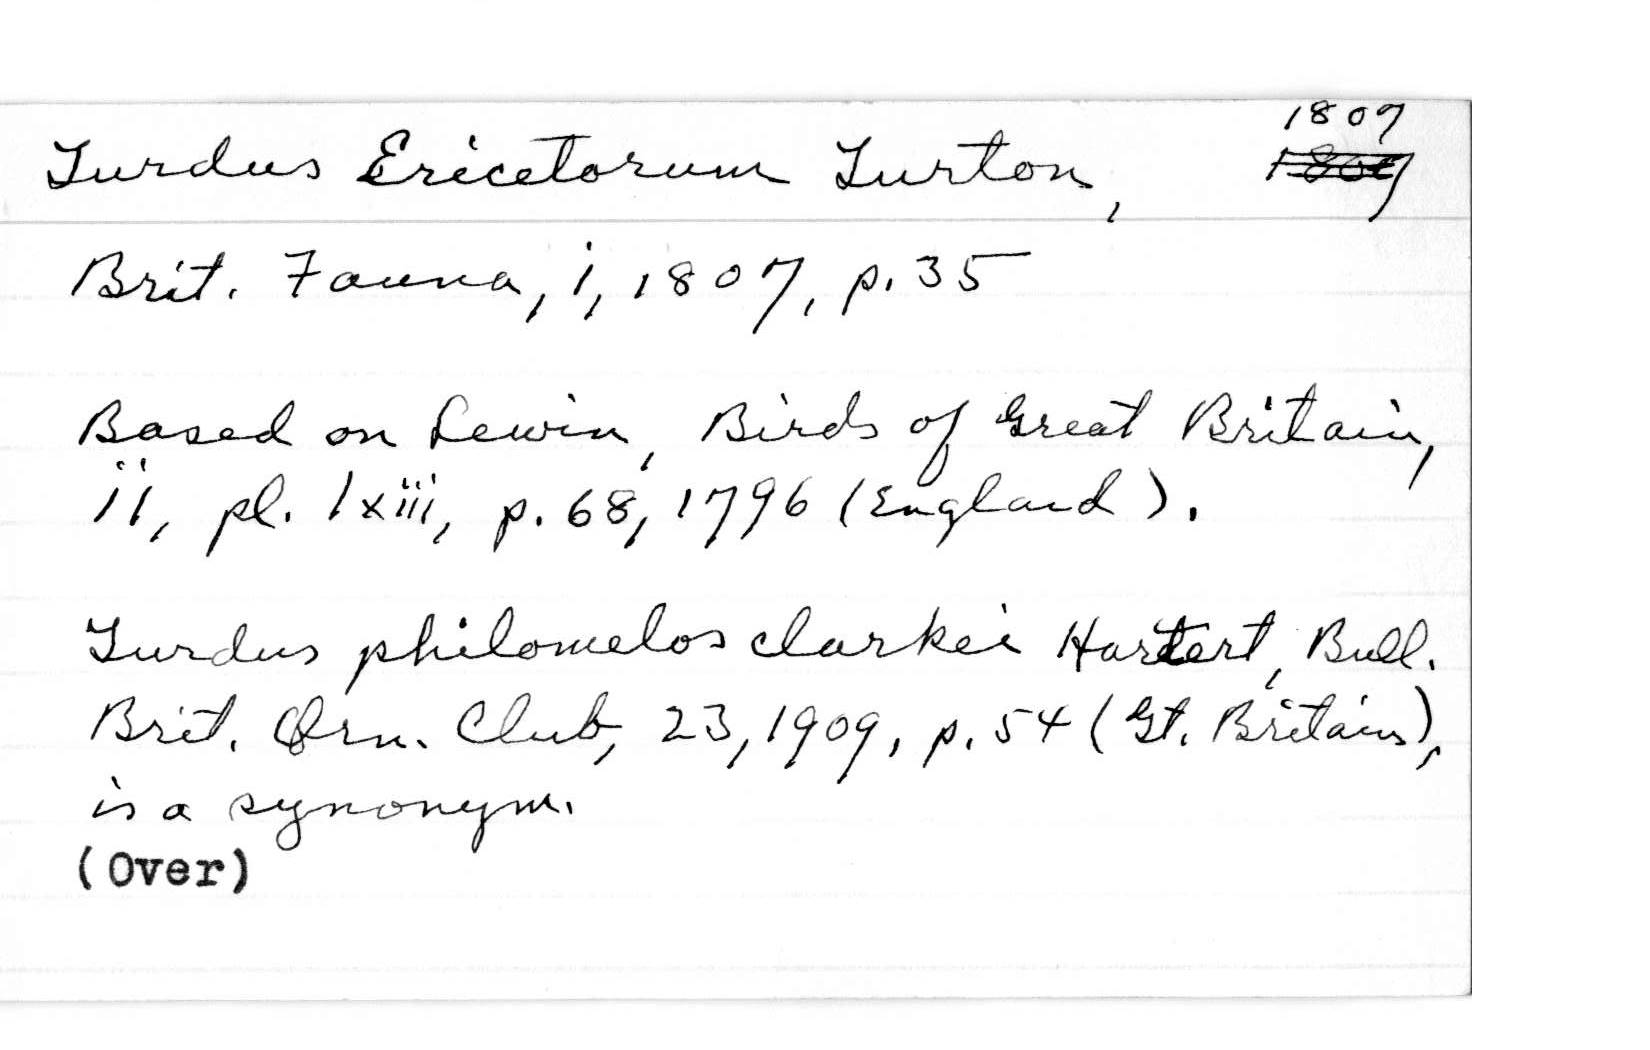 1807
Turdus Ericetorum Turton, 1807
Brit. Fauna, i, 1807, p. 35
Based on Lewin, Birds of Great Britain,
ii, pl. lxiii, p. 68, 1796 (England).
Turdus philomelos clarkei Hartert, Bull.
Brit. Orn. Club, 23, 1909, p. 54 (Gt. Britain),
is a synonym.
(Over)